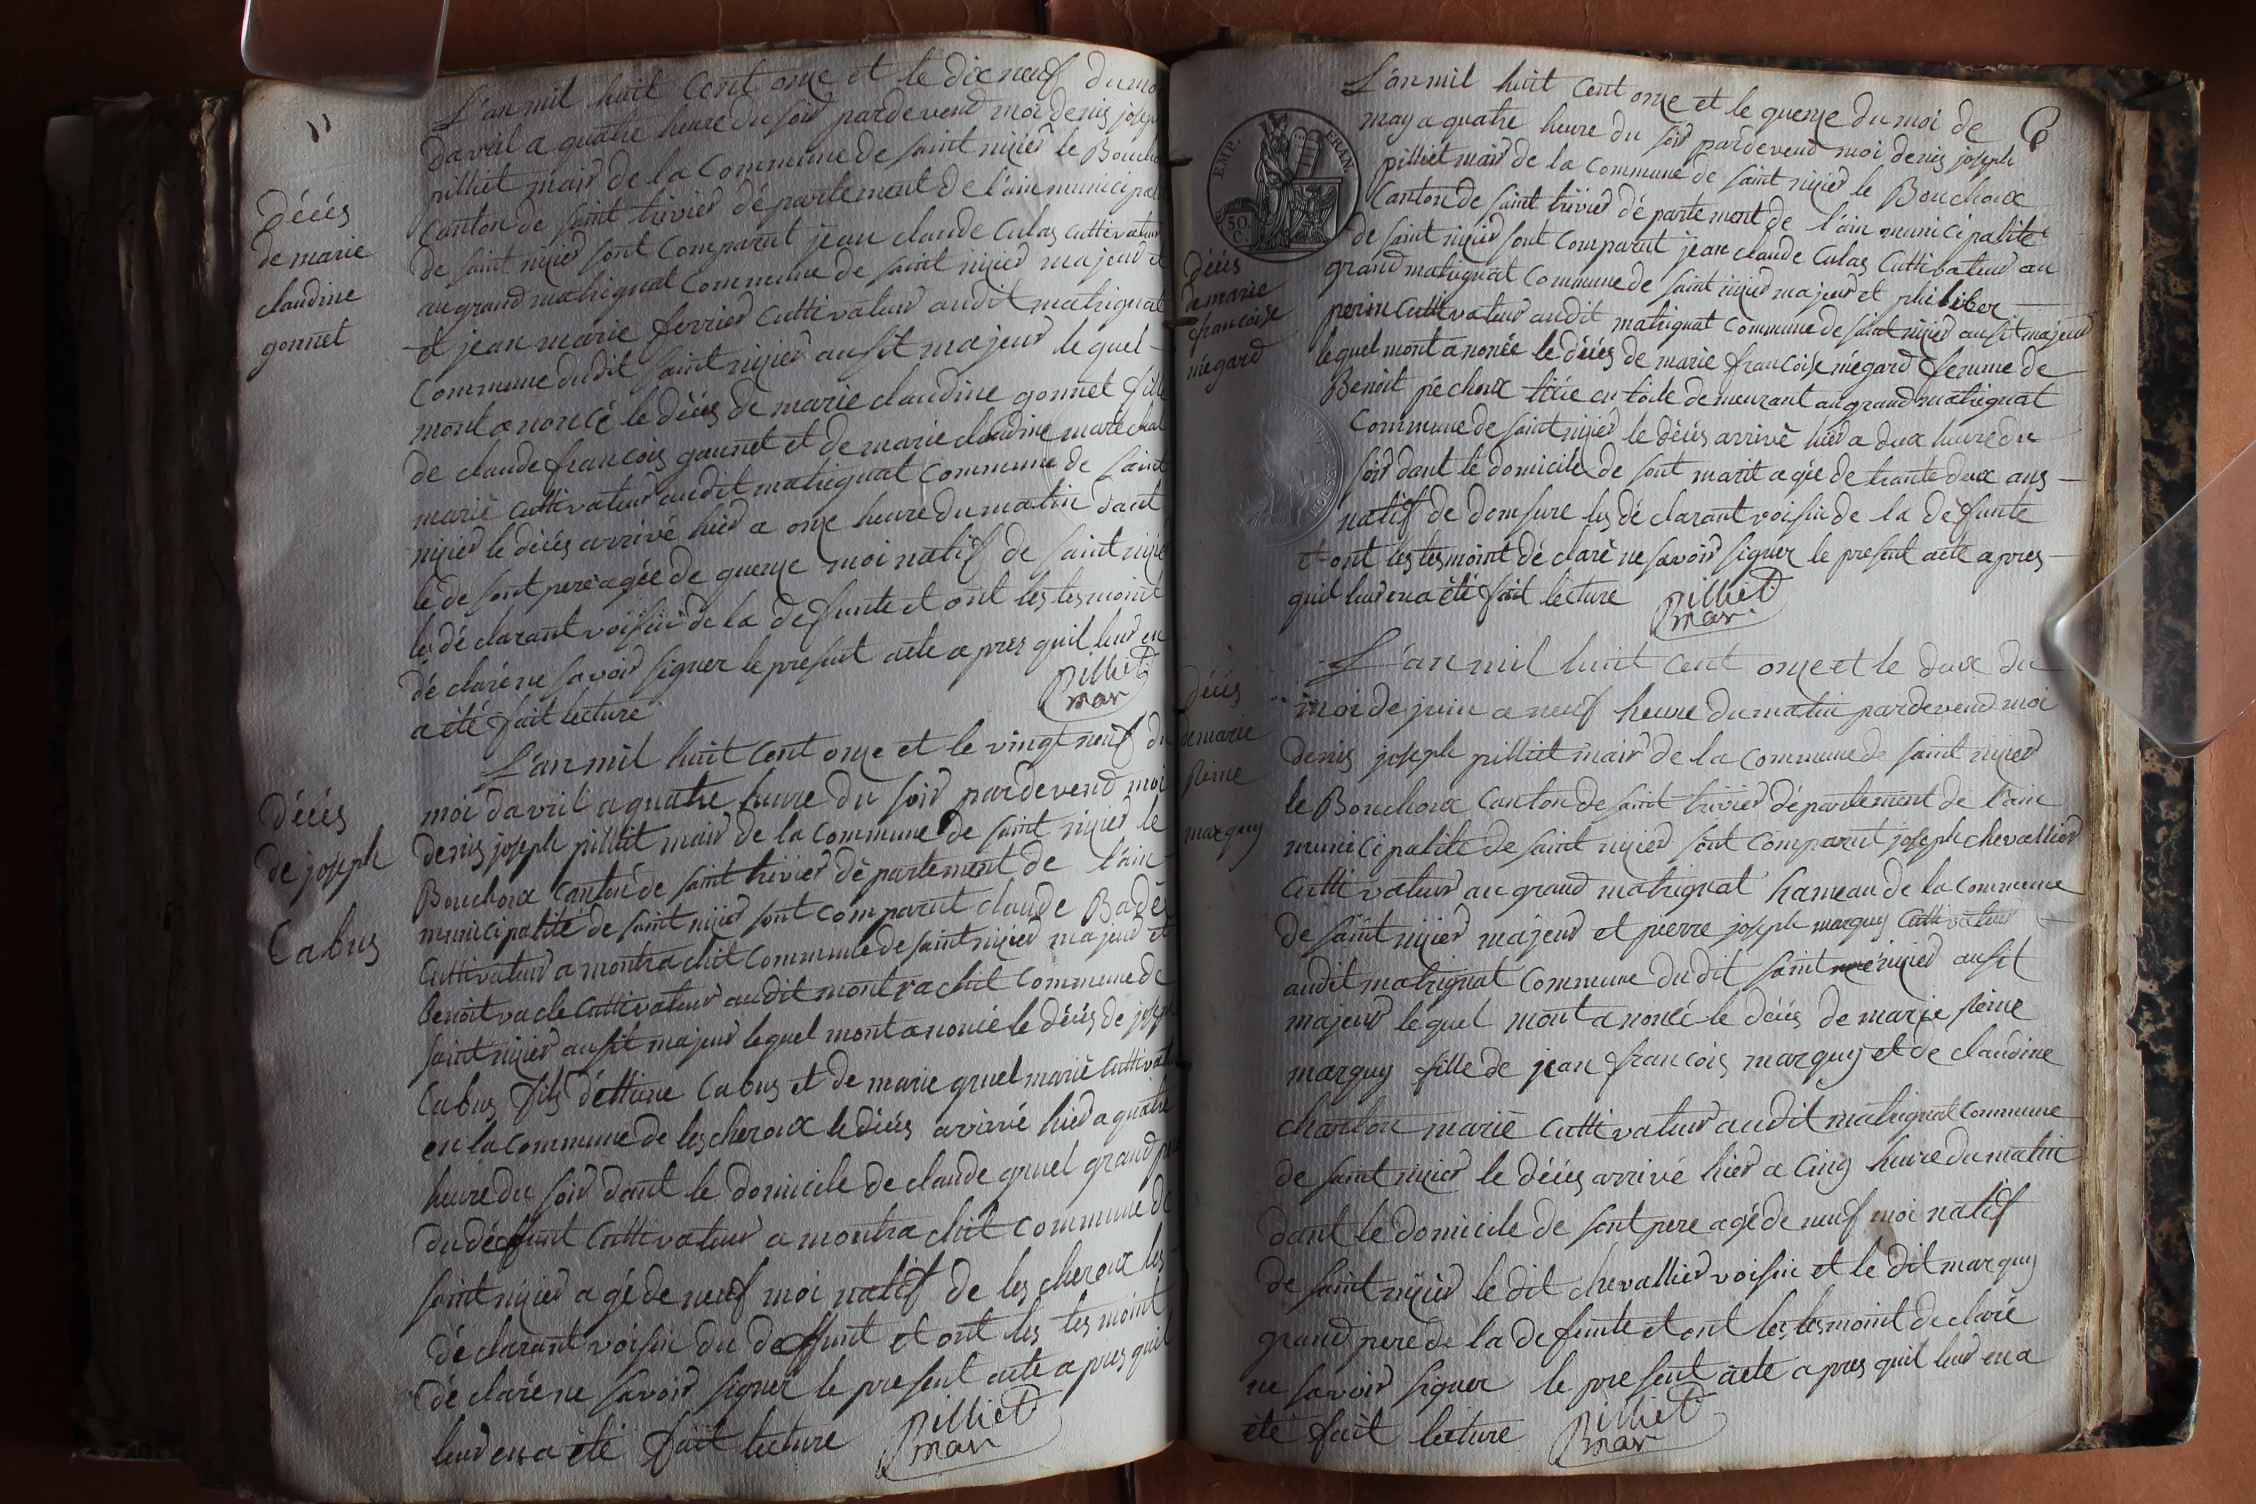 11
L'an mil huit cent onze et le dix neuf du moi
davril a quatre heure du soir pardevend moi denis joseph
pilliet mair de la commune de saint nizier le Bouchoux
canton de saint trivier département de l'ain municipalité
de saint nizier sont comparut jean claude Culas cuttivateur
au grand matignat commune de saint nizier majeur et
et jean marie ferrier cuttivateur audit matignat
commune dudit saint nizier ausit majeur lequel
mont anoncé le décés de marie claudine gonnet fille
de claude francois gonnet et de marie claudine marechal
marié cuttivateur audit matignat commune de saint
nizier le décés arrivé hier a onze heure du matin dant
le de sont pere agée de quenze moi natif de saint nizier
les déclarant voisin de la defunte et ont les tesmoint
déclaré ne savoir signer le present acte apres quil leur en
a été fait lecture
Pilliet
mar
décés
de marie
claudine
gonnet
L'an mil huit cent onze et le vingt neuf du
moi davril a quatre heure du soir pardevend moi
denis joseph pilliet mair de la commune de saint nizier le
Bouchoux canton de saint trivier département de l'ain
municipalité de saint nizier sont comparut claude Badet
cuttivateur a montrachit commune de saint nizier majeur et
benoit vacle cuttivateur audit montrachit commune de
saint nizier ausit majeur lequel mont anoncé le décés de joseph
Cabus fils d'ettiene Cabus et de marie gruel marié cuttivateur
en la commune de les cheroux le décés arrivé hier a quatre
heure du soir dant le domicile de claude gruel grand pere
du deffunt cuttivateur a montrachit commune de
saint nizier agé de neuf moi natif de les cheroux les
déclarant voisin du deffunt et ont les tesmoint
déclaré ne savoir signer le present acte apres quil
leur en a été fait lecture
Pilliet
mar
décés
de joseph
Cabus
EMP. FRAN.
50
C.
L'an mil huit cent onze et le quenze du moi de
may a quatre heure du soir pardevend moi denis joseph
pilliet mair de la commune de saint nizier le Bouchoux
canton de saint trivier département de l'ain municipalité
de saint nizier sont comparut jean claude Culas cuttivateur au
grand matignat commune de saint nizier majeur et philiber
perin cuttivateur audit matignat commune de saint nizier ausit majeur
lequel mont anoncé le décés de marie francoise mégard femme de
Benoit péchoux titié en toile demeurant au grand matignat
commune de saint nizier le décés arrivé hier a dux heure du
soir dant le domicile de sont marit agée de trante dux ans
natif de domsure les déclarant voisin de la defunte
et ont les tesmoint déclaré ne savoir signer le present acte apres
quil leur en a été fait lecture
Pilliet
mar
décés
de marie
francoise
mégard
L'an mil huit cent onze et le dux du
moi de juin a neuf heure du matin pardevend moi
denis joseph pilliet mair de la commune de saint nizier
le Bouchoux canton de saint trivier département de l'ain
municipalité de saint nizier sont comparut joseph chevallier
cuttivateur au grand matignat hameau de la commune
de saint nizier majeur et pierre joseph marguy cuttivateur
audit matignat commune dudit saint nizier ausit
majeur lequel mont anoncé le décés de marie Reine
marguy fille de jean francois marguy et de claudine
charlon marié cuttivateur audit matignat commune
de saint nizier le décés arrivé hier a cinq heure du matin
dant le domicile de sont pere agé de neuf moi natif
de saint nizier le dit chevallier voisin et le dit marguy
grand pere de la defunte et ont les tesmoint déclaré
ne savoir signer le present acte apres quil leur en a
été fait lecture
Pilliet
mar
décés
de marie
Reine
marguy